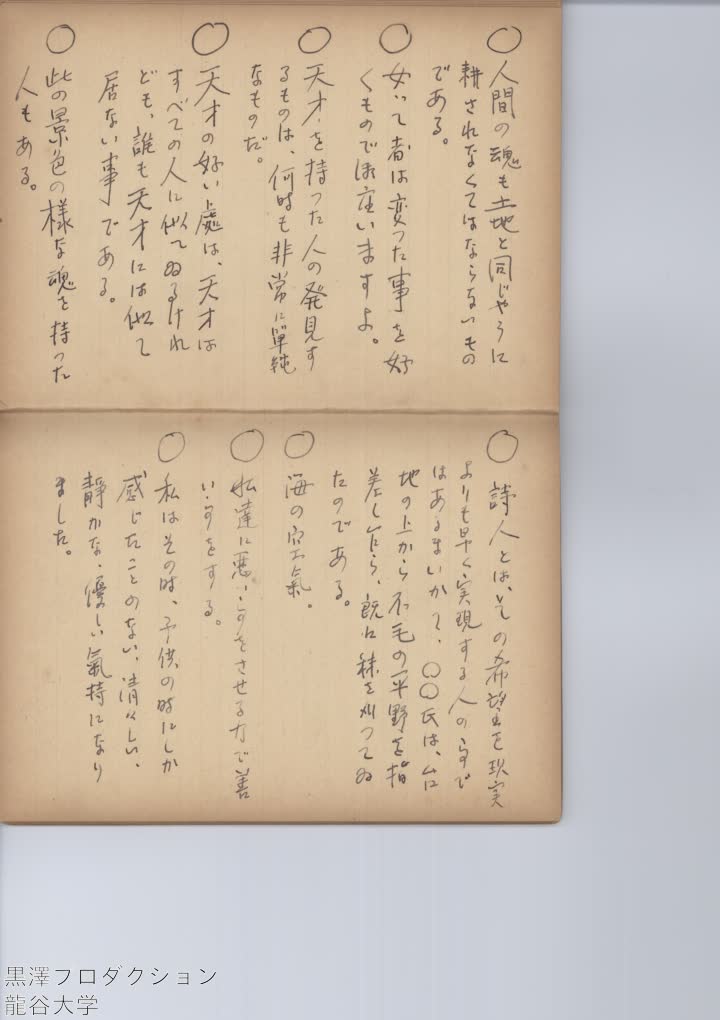 ○人間の魂も土地と同じやうに
耕されなくてはならないもの
である。
○女って者は変つた事を好
くもので御座いますよ。
○天才を持つた人の発見す
るものは、何時も非常に單純
なものだ。
○天才の好い處は、天才は
すべての人に似てゐるけれ
ども、誰も天才には似て
居ない事である。
○此の景色の様な魂を持つた
人もある。
○詩人とは、その希望を現実
よりも早く実現する人の事で
はあるまいか？、○○氏は、台
地の上から不毛の平野を指
差し乍ら、既に秣を刈つてゐ
たのである。
○海の空氣。
○私達に悪い事をさせる力で善
い事をする。
○私はその時、子供の時にしか
感じたことのない、清々しい、
靜かな、優しい氣持になり
ました。
黒澤プロダクション
龍谷大学